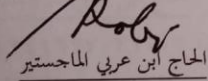 الحاج ابن عربي الماجستير